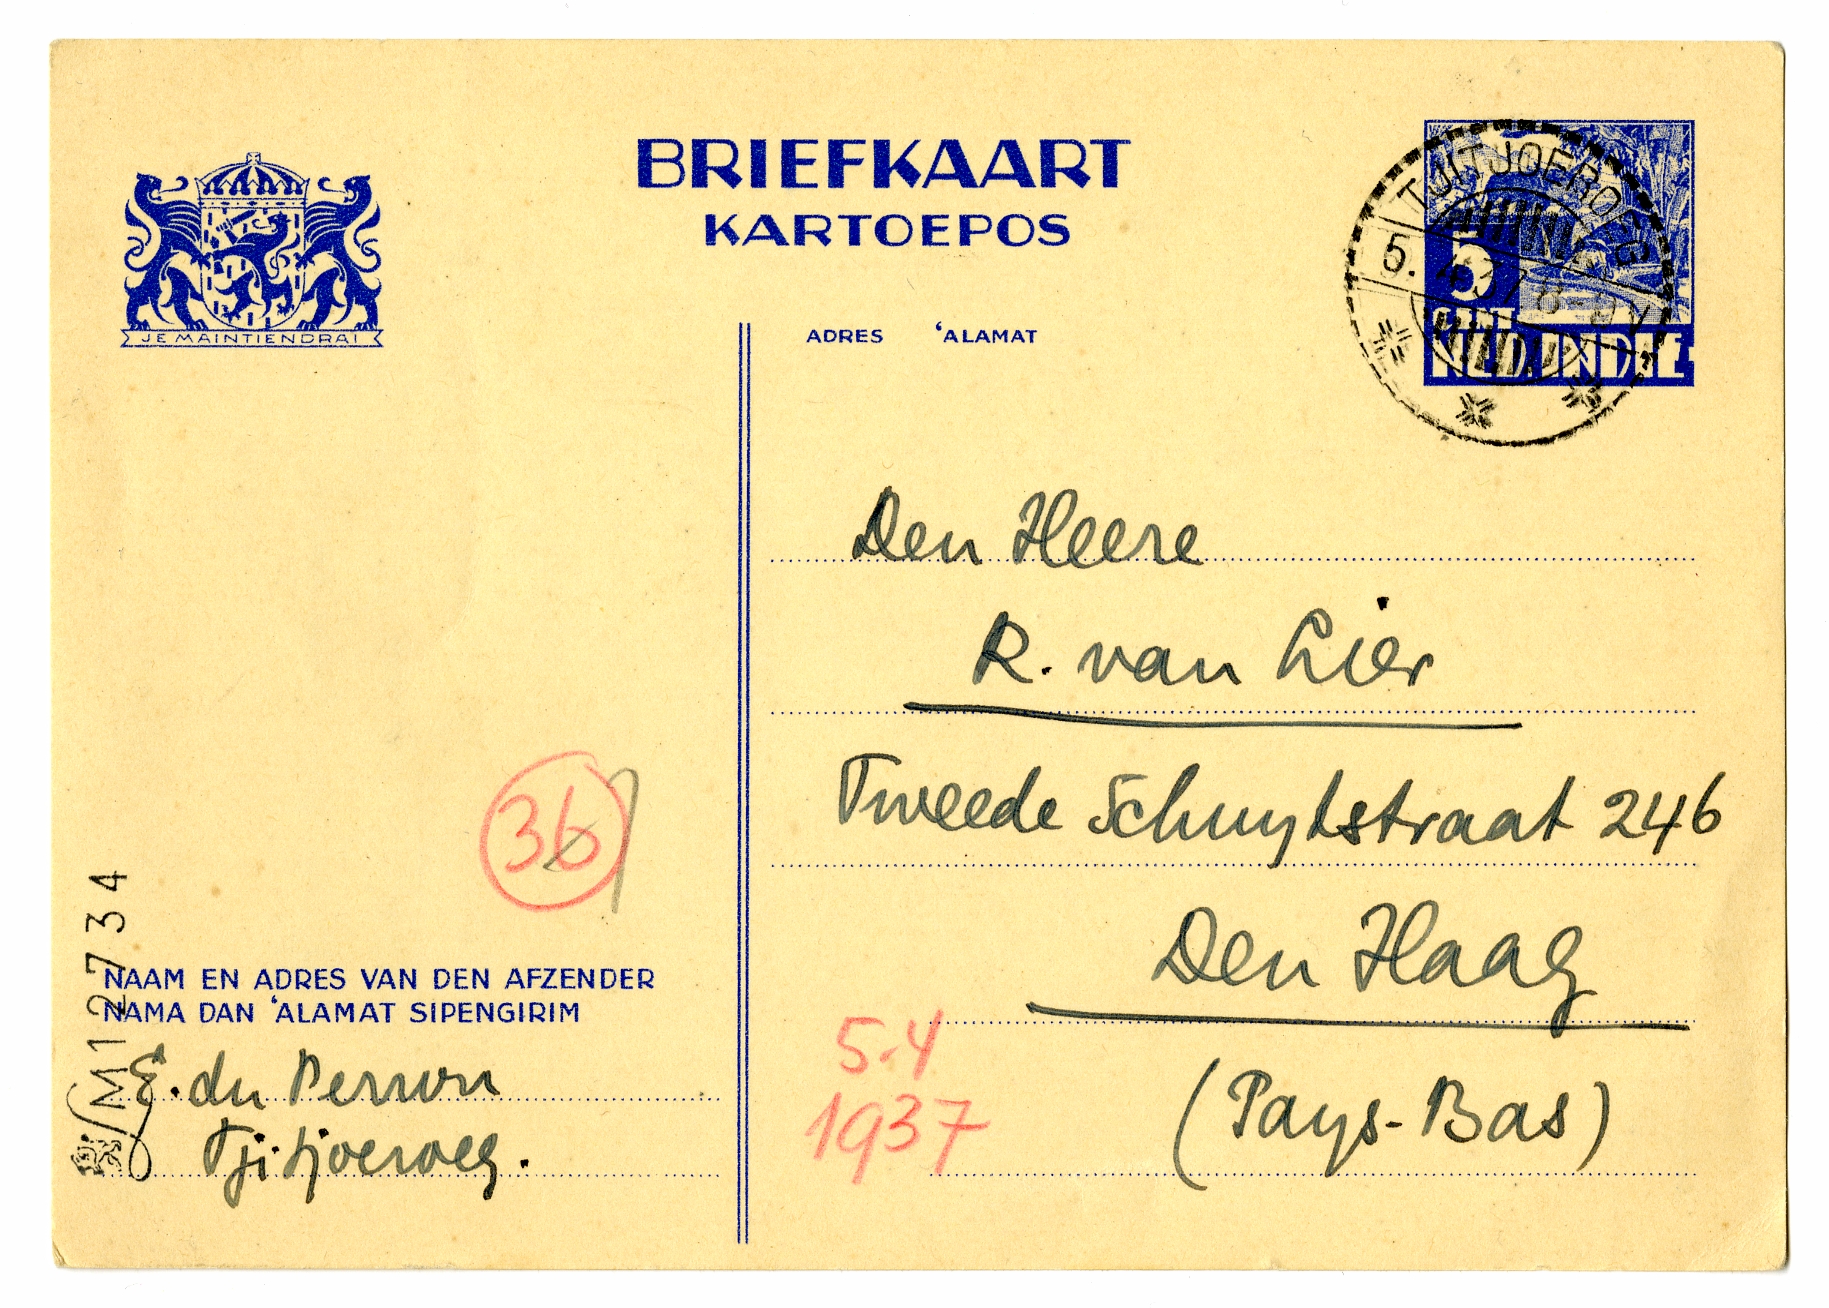 BRIEFKAART
KARTOEPOS
JE MAINTIENDRAI
ADRES ‘ALAMAT
TJITJOEROEG
5. 4.37.8-9V
5
NED. INDIE
Den Heere
R. van Lier
Tweede Schuytstraat 246
Den Haag
(Pays-Bas)
36
5-4
1937
M12734
NAAM EN ADRES VAN DEN AFZENDER
NAMA DAN ‘ALAMAT SIPENGIRIM
E. du Perron
Tjitjoeroeg.